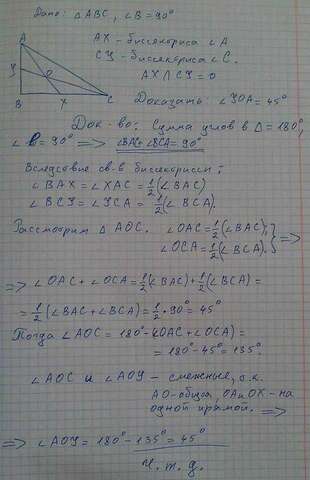 Дано: △ABC, ∠B=90°
A
AX - биссектриса ∠A
CY - биссектриса ∠C.
AX∩CY=O
Y O
B X C
Доказать: ∠YOA=45°
Док-во: Сумма углов в △=180°,
∠B=90° => ∠BAC+∠BCA=90°
Вследствие св-в биссектрисы:
∠BAX=∠XAC=1/2(∠BAC)
∠BCY=∠YCA=1/2(∠BCA).
Рассмотрим △AOC. ∠OAC=1/2(∠BAC),
∠OCA=1/2(∠BCA). } =>
=> ∠OAC+∠OCA=1/2(∠BAC)+1/2(∠BCA)=
=1/2(∠BAC+∠BCA)=1/2·90°=45°
Тогда ∠AOC=180°-(∠OAC+∠OCA)=
=180°-45°=135°.
∠AOC и ∠AOY - смежные, т.к.
AO-общая, OY и OC - на
одной прямой. =>
=> ∠AOY=180°-135°=45°
Ч.т.д.